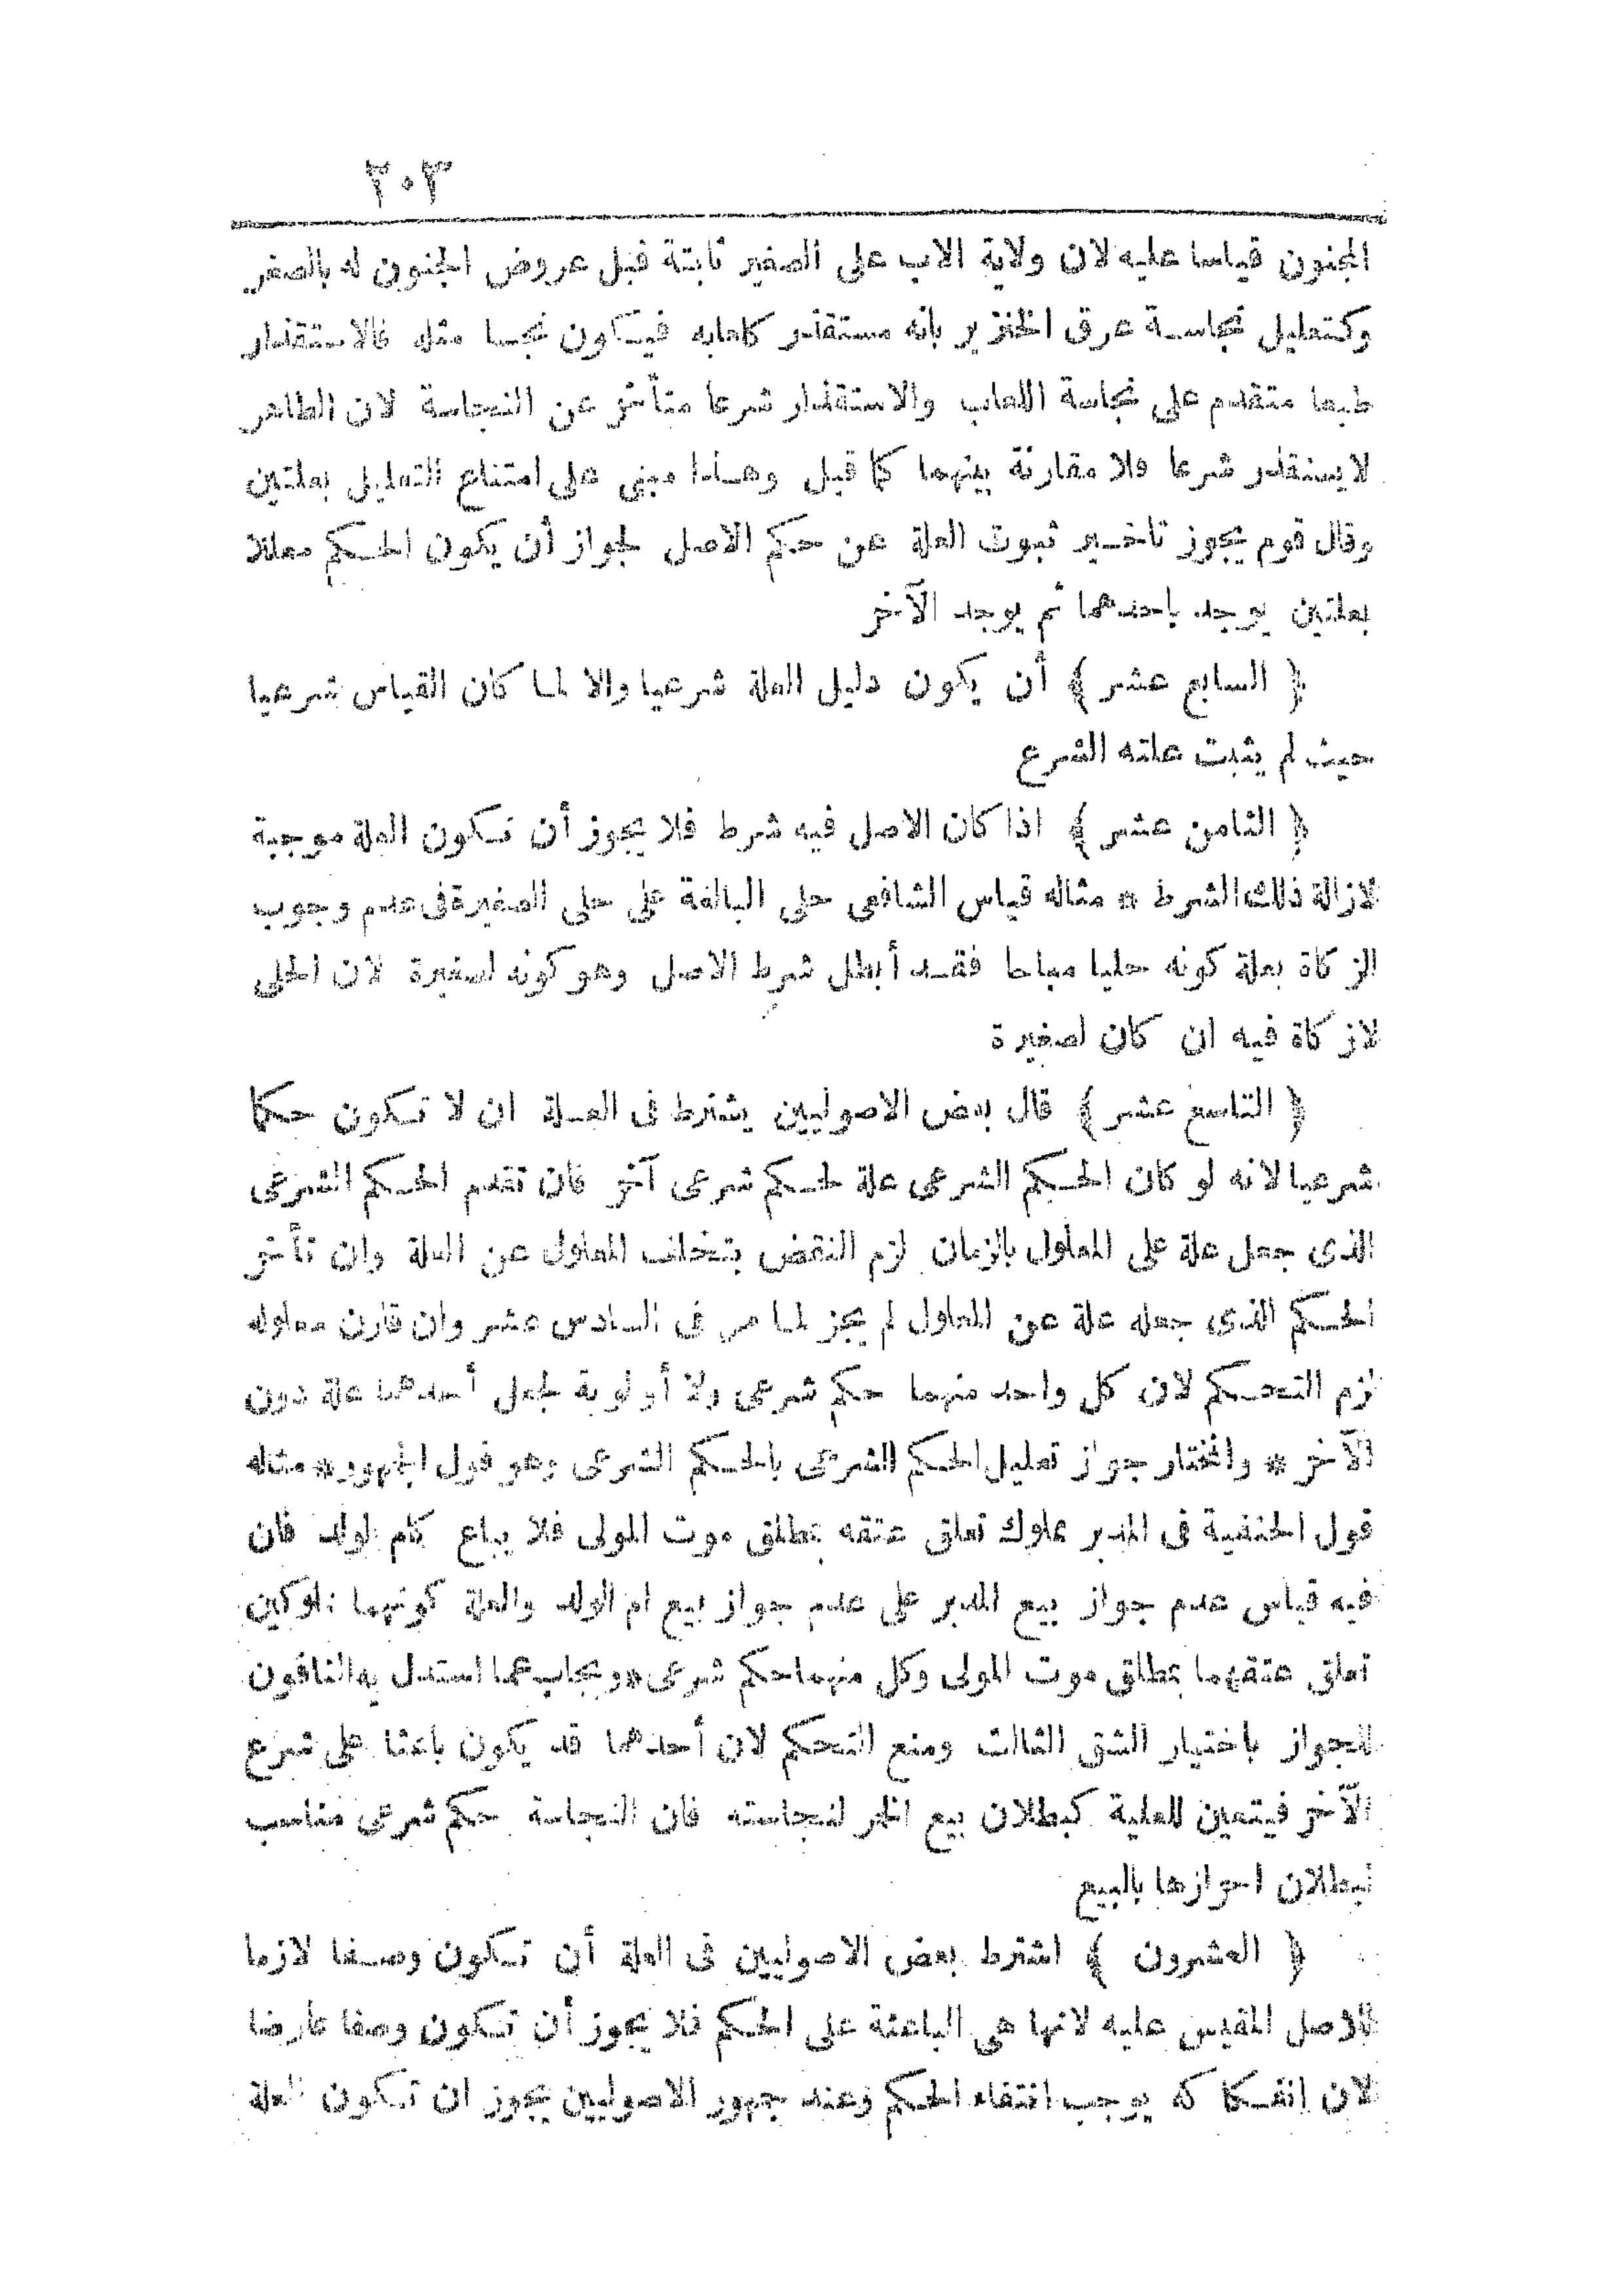 ٢٠٣
المجنون قياسا عليه لان ولاية الاب على الصغير ثابتة قبل عروض الجنون له بالصغر
وكتعليل نجاسة عرق الخنزير بانه مستقذر كلعابه فيكون نجسا مثله فالاستقذار
طبعا متقدم على نجاسة اللعاب والاستقذار شرعا متأخر عن النجاسة لان الطاهر
لايستقذر شرعا ولا مقارنة بينهما كما قيل وهذا مبنى على امتناع التعليل بعلتين
وقال قوم يجوز تاخير ثبوت العلة عن حكم الاصل لجواز أن يكون الحكم معللا
بعلتين يوجد باحدهما ثم يوجد الآخر
﴿ السابع عشر ﴾ أن يكون دليل العلة شرعيا والا لما كان القياس شرعيا
حيث لم يثبت علته الشرع
﴿ الثامن عشر ﴾ اذا كان الاصل فيه شرط فلا يجوز أن تكون العلة موجبة
لازالة ذلك الشرط * مثاله قياس الشافعى حلى البالغة على حلى الصغيرة فى عدم وجوب
الزكاة بعلة كونه حليا مباحا فقد أبطل شرط الاصل وهو كونه لصغيرة لان الحلى
لازكاة فيه ان كان لصغيرة
﴿ التاسع عشر ﴾ قال بعض الاصوليين يشترط فى العلة ان لا تكون حكما
شرعيا لانه لو كان الحكم الشرعى علة لحكم شرعى آخر فان تقدم الحكم الشرعى
الذى جعل علة على المعلول بالزمان لزم النقض بتخلف المعلول عن العلة وان تأخر
الحكم الذى جعله علة عن المعلول لم يجز لما مر فى السادس عشر وان قارن معلوله
لزم التحكم لان كل واحد منهما حكم شرعى ولا أولوية لجعل أحدهما علة دون
الآخر * والمختار جواز تعليل الحكم الشرعى بالحكم الشرعى وهو قول الجمهور * مثاله
قول الحنفية فى المدبر مملوك تعلق عتقه بمطلق موت المولى فلا يباع كام لولد فان
فيه قياس عدم جواز بيع المدبر على عدم جواز بيع ام الولد والعلة كونهما مملوكين
تعلق عتقهما بمطلق موت المولى وكل منهما حكم شرعى * ويجاب عما استدل به النافون
للجواز باختيار الشق الثالث ومنع التحكم لان أحدهما قد يكون باعثا على شرع
الآخر فيتعين للعلية كبطلان بيع الخمر لنجاسته فان النجاسة حكم شرعى مناسب
لبطلان احوازها بالبيع
﴿ العشرون ﴾ اشترط بعض الاصوليين فى العلة أن تكون وصفا لازما
للاصل المقيس عليه لانها هى الباعثة على الحكم فلا يجوز أن تكون وصفا عارضا
لان انفكاكه يوجب انتفاء الحكم وعند جمهور الاصوليين يجوز ان تكون العلة